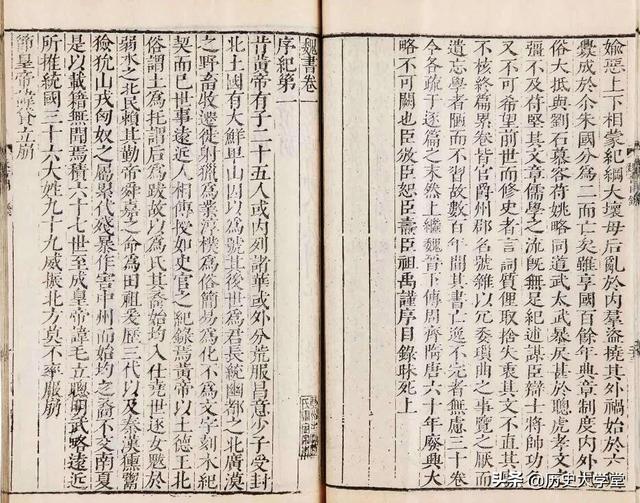 媮惡上下相蒙紀綱大壞母后亂於內羣盜撓其外禍始於六
釁成於尒朱國分爲二而亡矣雖享國百餘年典章制度內外風
俗大抵與劉石慕容苻姚略同道武太武暴戾甚於聰虎孝文之
彊不及苻堅其文章儒學之流旣無足紀述謀臣辯士將帥功
又不可希望前世而修史者言詞質俚取捨失衷其文不直其事
不核終篇累卷皆官爵州郡名號雜以冗委瑣曲之事覽之厭而
遺忘學者陋而不習故數百年間其書亡逸不完者無慮三十卷
今各疏于逐篇之末然上繼魏晉下傳周齊隋唐六十年廢興大
略不可闕也臣攽臣恕臣燾臣祖禹謹序目錄昧死上
魏書卷一
序紀第一
昔黃帝有子二十五人或內列諸華或外分荒服昌意少子受封
北土國有大鮮卑山因以爲號其後世爲君長統幽都之北廣漠
之野畜牧遷徙射獵爲業淳樸爲俗簡易爲化不爲文字刻木紀
契而已世事遠近人相傳授如史官之紀錄焉黃帝以土德王北
俗謂土爲托謂后爲跋故以爲氏其裔始均入仕堯世逐女魃於
弱水之北民賴其勤帝舜嘉之命爲田祖爰歷三代以及秦漢獯鬻
獫狁山戎匈奴之屬累代殘暴作害中州而始均之裔不交南夏
是以載籍無聞焉積六十七世至成皇帝諱毛立聰明武略遠近
所推統國三十六大姓九十九威振北方莫不率服崩
節皇帝諱貸立崩
头条 @历史大学堂